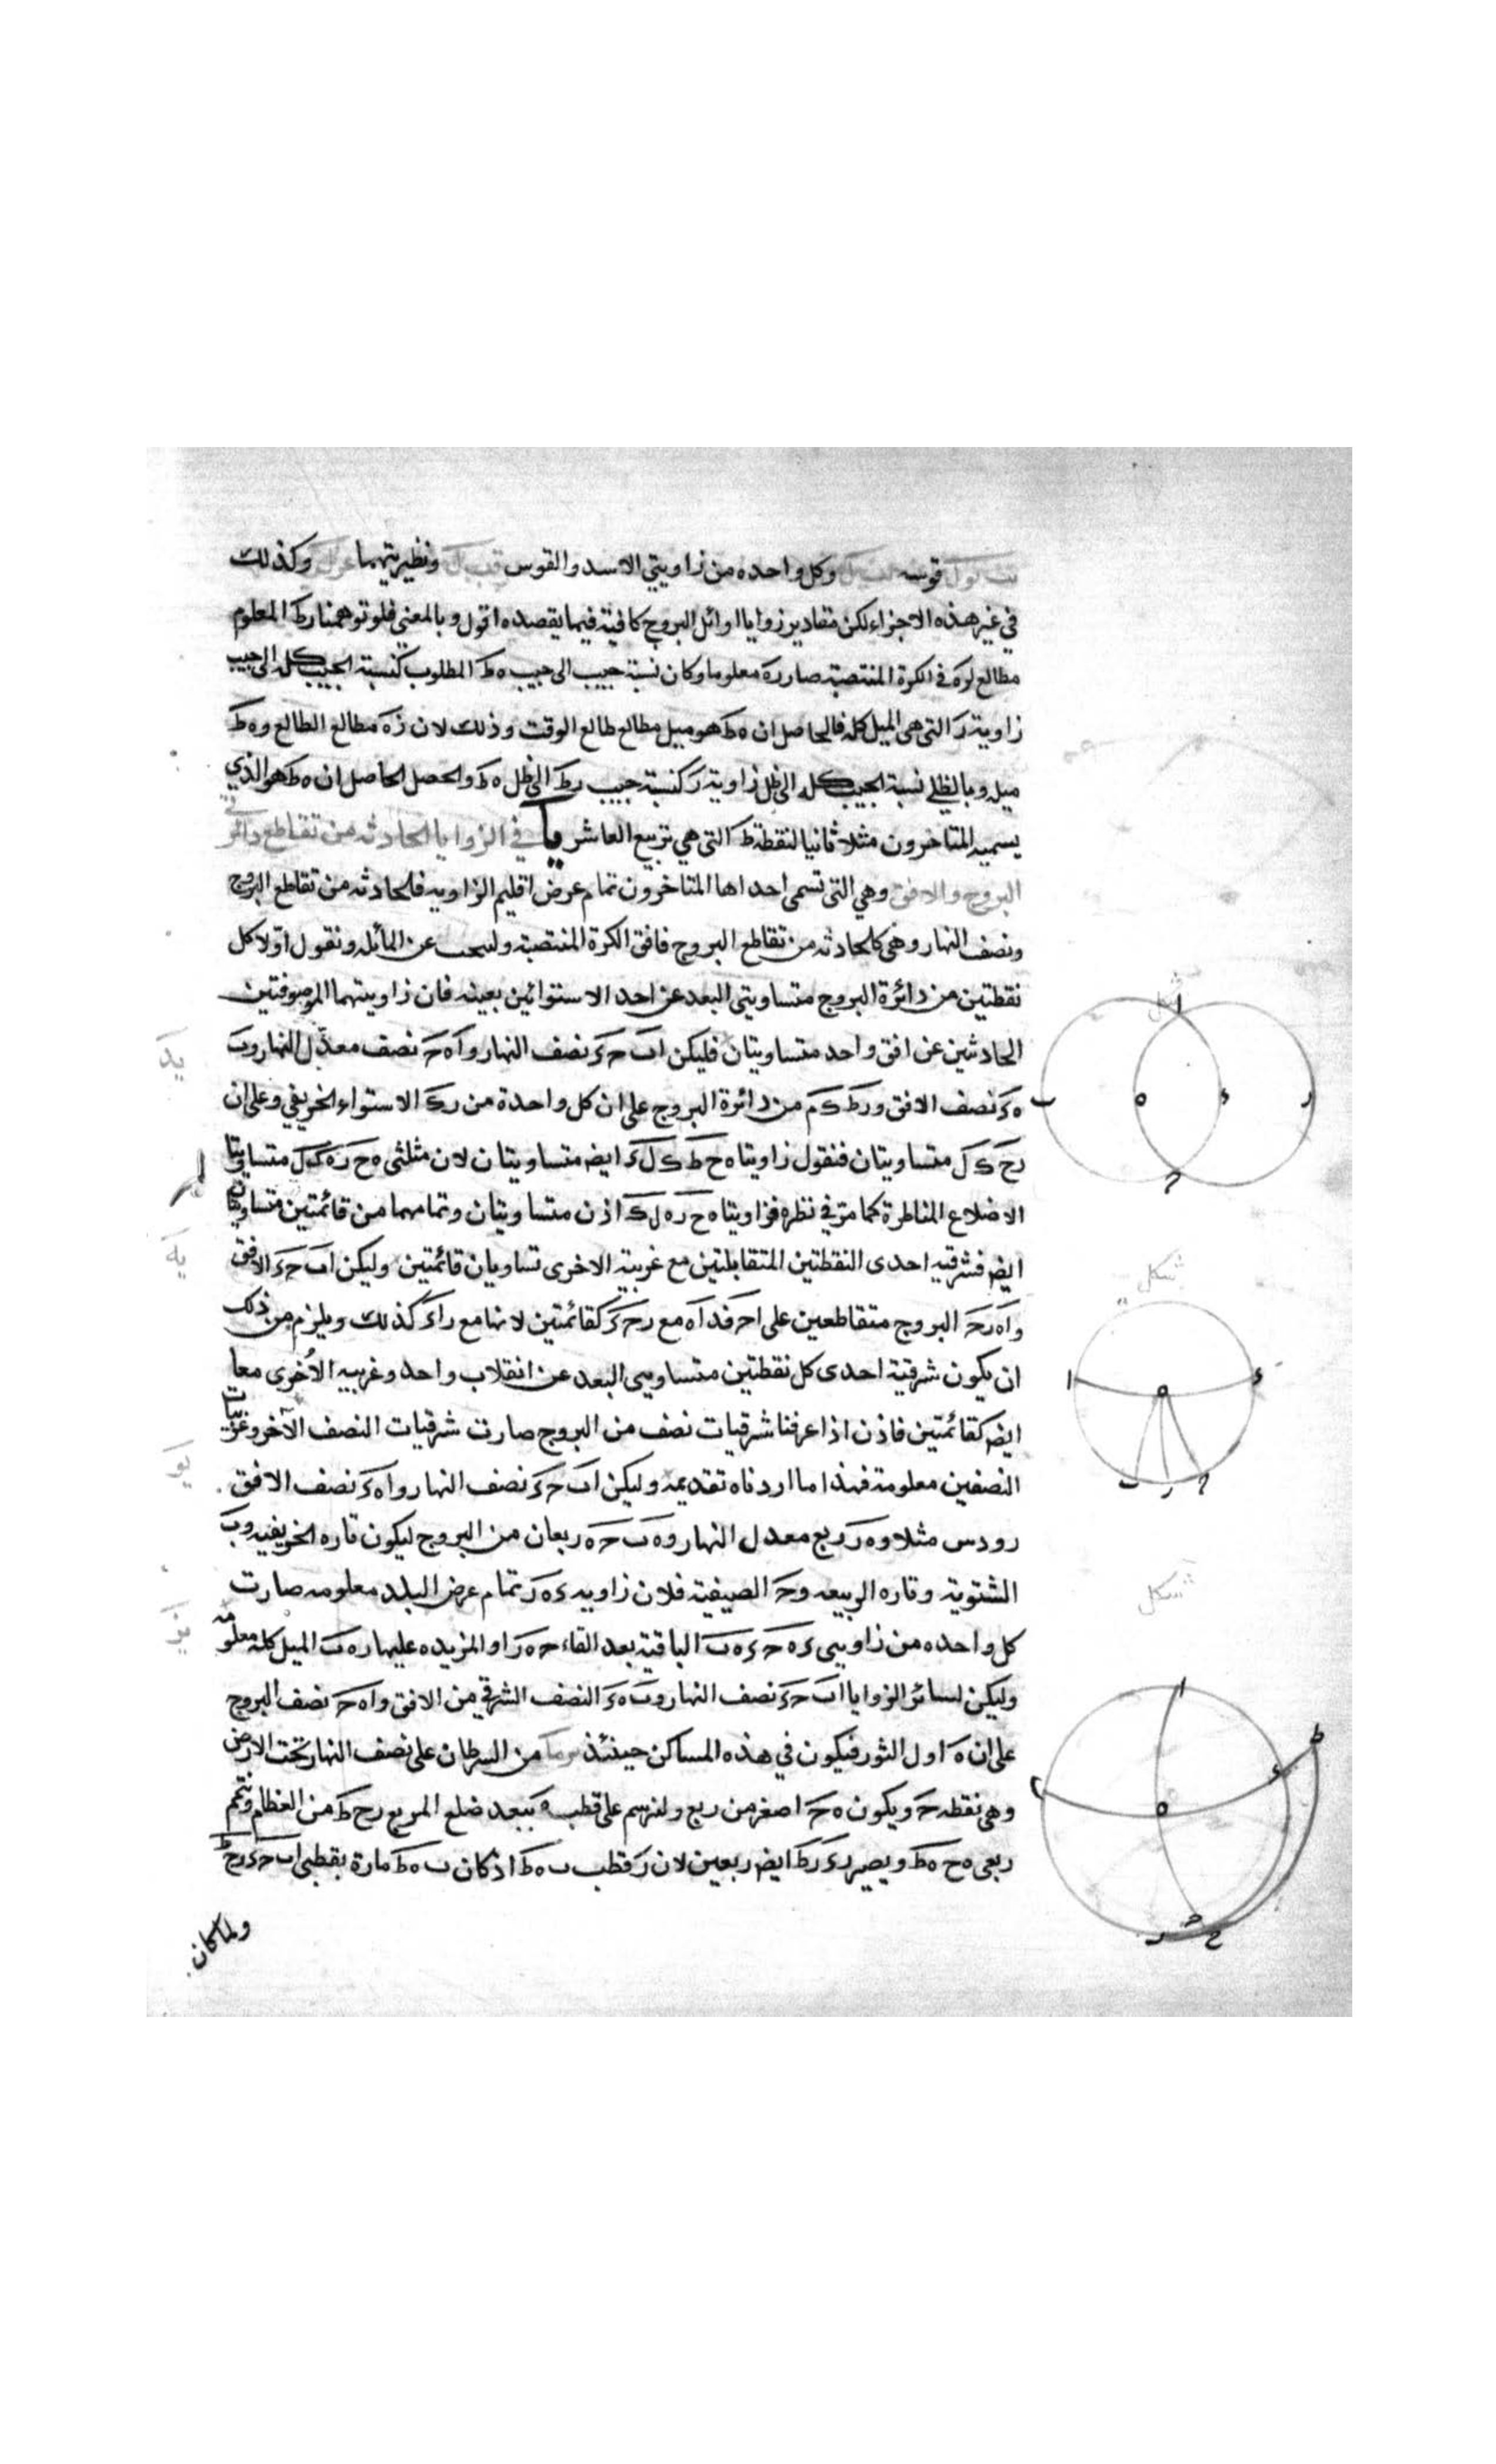 قوسه وكل واحده من زاويتي الاسد والقوس ونظيريتهما وكذلك
في غير هذه الاجزاء لكن مقادير زوايا اوائل البروج كافية فيما يقصده اقول وبالمعني فلو توهمنا رط المعلوم
مطالع لره في الكرة المنتصبة صار ره معلوما وكان نسبة جيب الى جيب ه ط المطلوب كنسبة الجيب كله الى جيب
زاوية ر التي هي الميل كله فالحاصل ان ه ط هو ميل مطالع طالع الوقت وذلك لان ره مطالع الطالع وه ط
ميله وبالظلي نسبة الجيب كله الى ظل زاوية ر كنسبة جيب رط الى ظل ه ط والحصل الحاصل ان ه ط هو الذي
يسميه المتاخرون مثلا ثانيا لنقطة ط التي هي تربيع العاشر يا في الزوايا الحادثه من تقاطع دائرتي
البروج والافق وهي التي تسمى احداها المتاخرون تمام عرض اقليم الزاويه فالحادثه من تقاطع البروج
ونصف النهار وهي كالحادثه من تقاطع البروج فافق الكرة المنتصبة ولنبحث عن المائله ونقول اولا كل
نقطتين من دائرة البروج متساويتي البعد عن احد الاستوائين بعينه فان زاويتهما الموصوفتين
الحادثين عن افق واحد متساويتان فليكن اب ح د نصف النهار وا ه ح نصف معدل النهار وب
ه د نصف الافق ور ط ك م من دائرة البروج على ان كل واحدة من ر ك الاستواء الخريفي وعلى ان
رح ك ل متساويتان فنقول زاويتا ه ح ط ك ل د ايضه متساويتان لان مثلثي ه ح ر ه ك ل متساويتا
الاضلاع المناظرة كما مر في نظره فزاويتا ه ح ر ه ل ك اذن متساويتان وتمامهما من قائمتين متساويتان
ايضه فشرقيه احدى النقطتين المتقابلتين مع غربية الاخرى تساويان قائمتين وليكن اب ح د الافق
وا ه ر ح البروج متقاطعين على ا ح فد ا ه مع ر ح د كقائمتين لانها مع را د كذلك ويلزم من ذلك
ان يكون شرقية احدى كل نقطتين متساويي البعد عن انقلاب واحد وغربيه الاخرى معا
ايضه كقائمتين فاذن اذا عرفنا شرقيات نصف من البروج صارت شرقيات النصف الآخر وغربيات
النصفين معلومة فهذا ما اردناه تقديمه وليكن اب ح د نصف النهار وا ه د نصف الافق
رودس مثلا وه ر ربع معدل النهار وه ب ح ه ربعان من البروج ليكون تاره الخريفيه وب
الشتوية وتاره الربيعه وح الصيفية فلان زاويه د ه ر تمام عرض البلد معلومه صارت
كل واحده من زاويتي د ه ح د ه ب الباقية بعد القاء ح ه ر او المزيده عليها ر ه ب الميل كله معلومه
وليكن لسائر الزوايا اب ح د نصف النهار وب ه د النصف الشرقي من الافق وا ه ح نصف البروج
على ان ه اول الثور فيكون في هذه المساكن حينئذ من السرطان على نصف النهار تحت الارض
وهي نقطه ح ويكون ه ح اصغر من ربع ولنرسم على قطب ه ببعد ضلع المربع رح ط من العظام ونتمم
ربعي ه ح ه ط ويصير ر د ر ط ايضه ربعين لان ر قطب ب ه ط اذ كان ب ه ط مارة بقطبي اب ح د رح ط
ولما كان
يد
يه
شكل
شكل
شكل